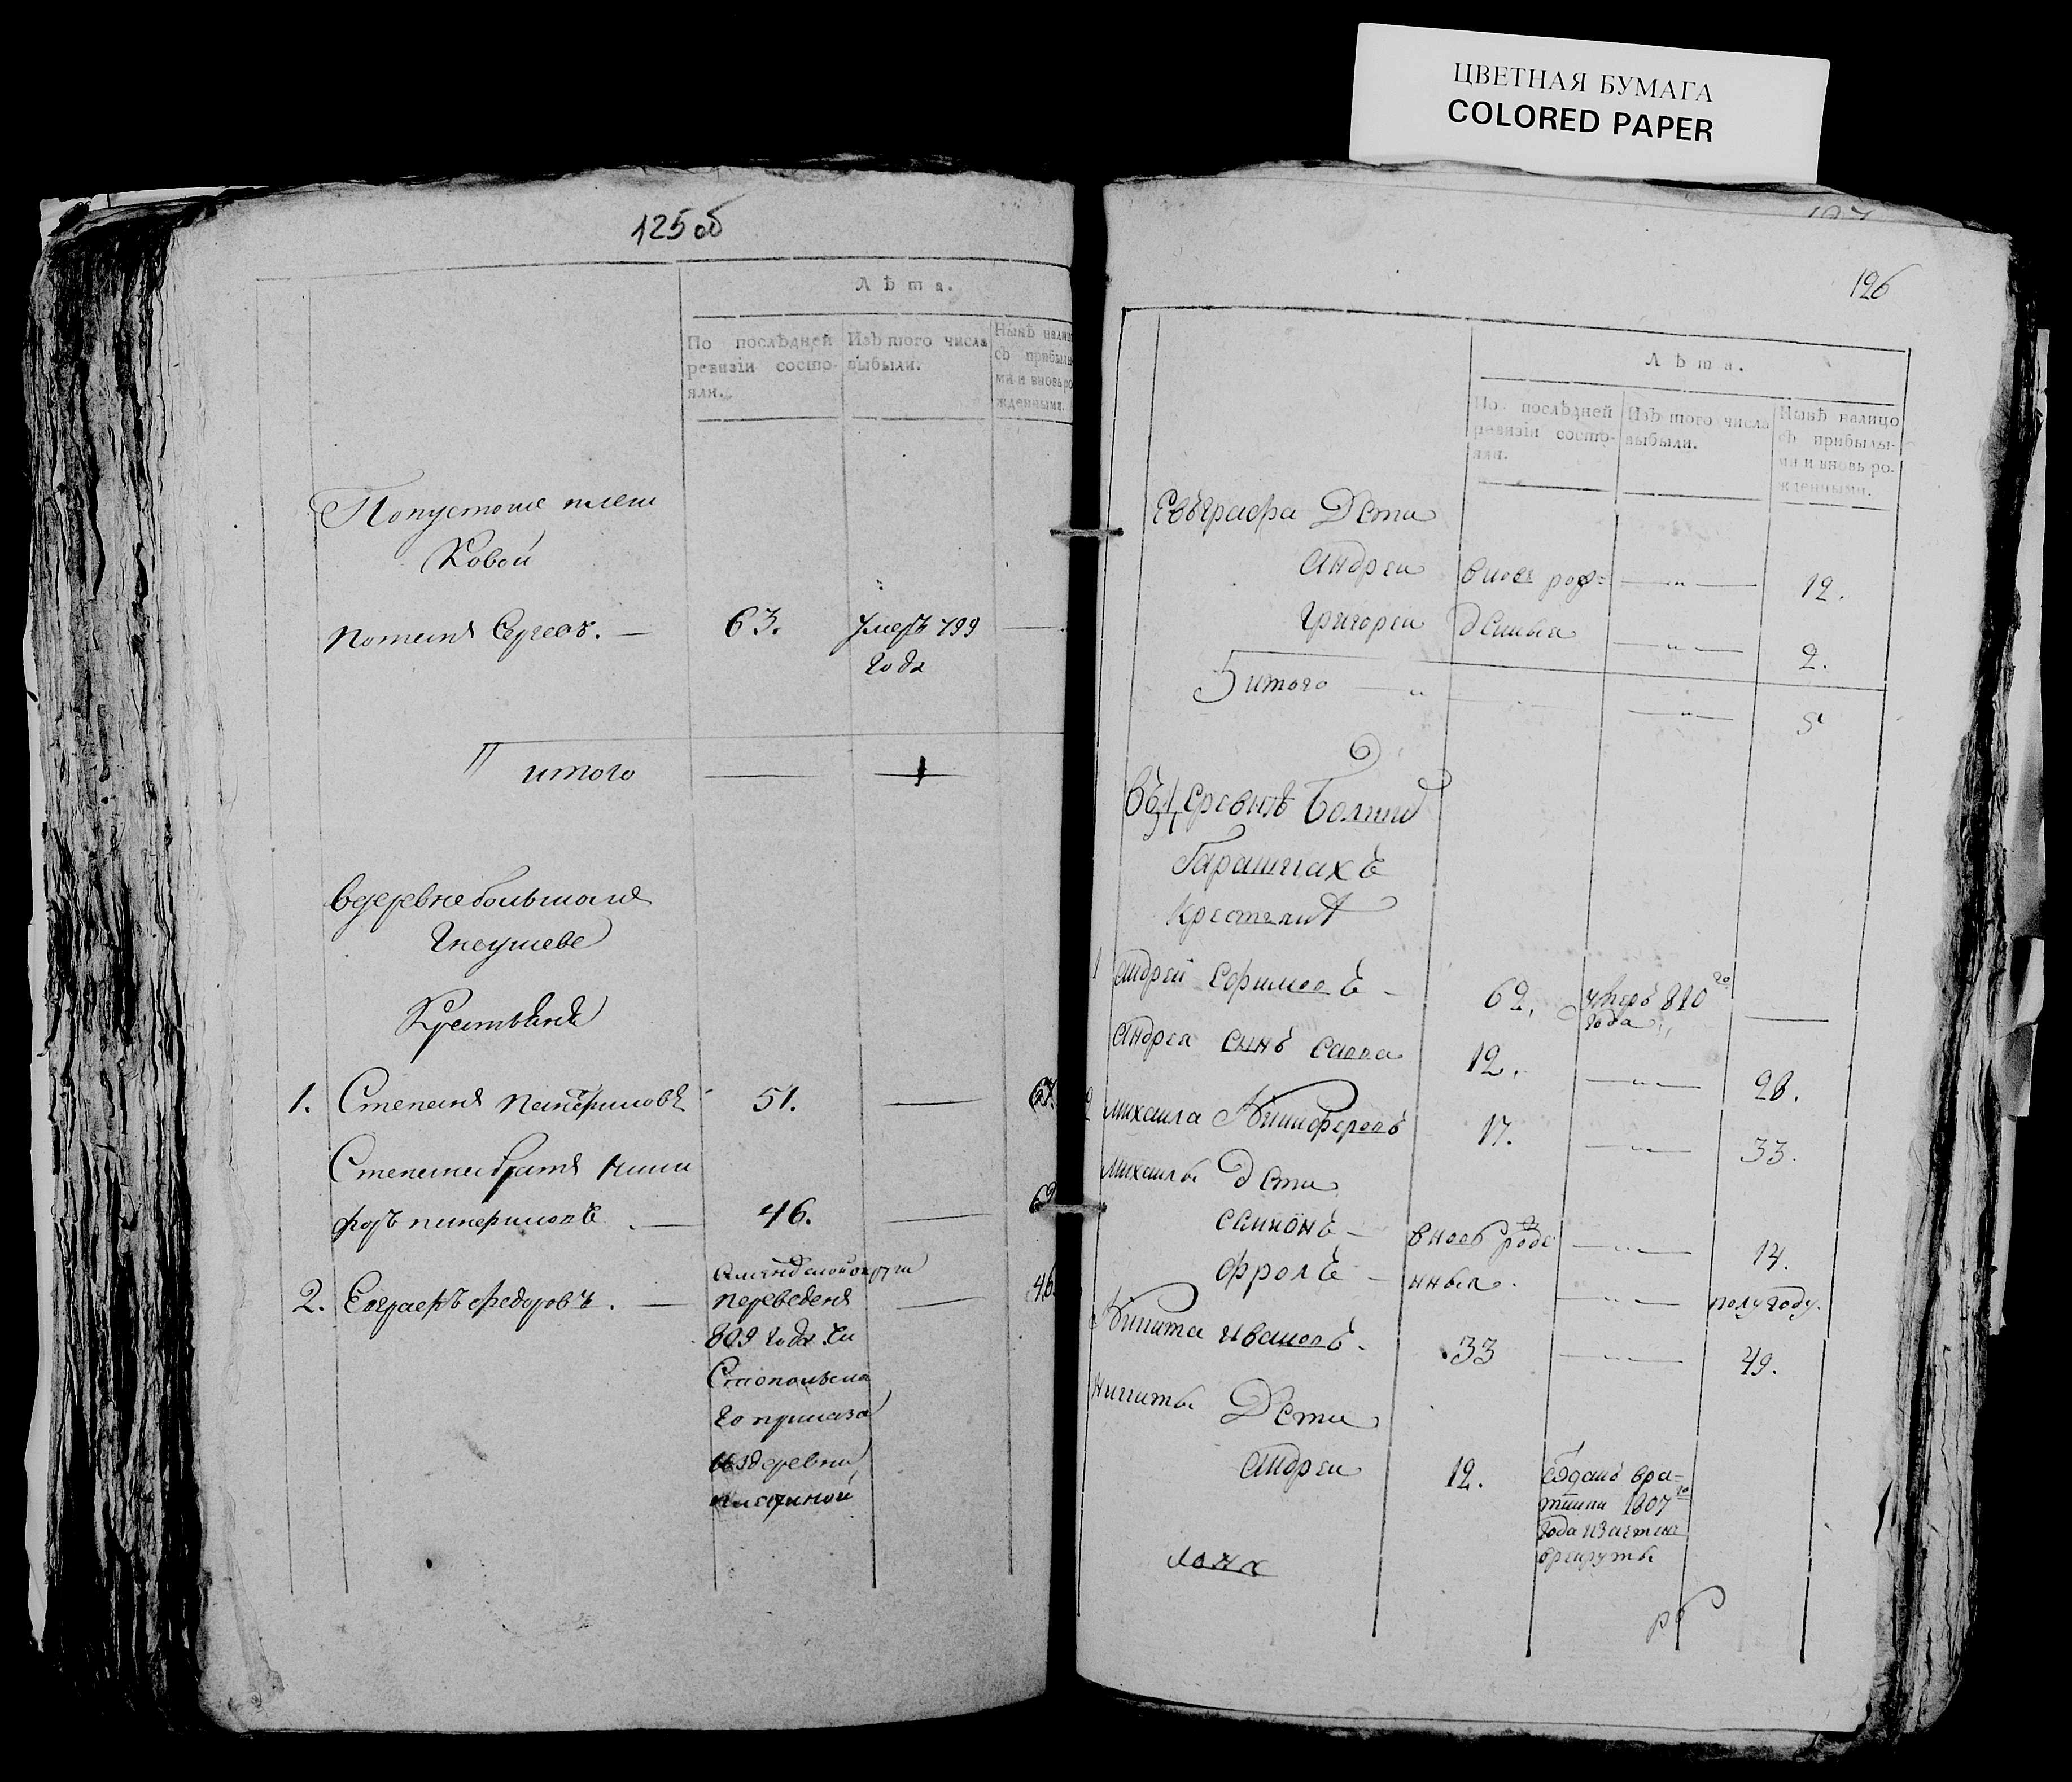 ЦВЕТНАЯ БУМАГА
COLORED PAPER
125 об
Лѣта.
По послѣдней ревизіи состо-яли.
Изъ того числа выбыли.
Нынѣ налиц
съ прибылы
ми и вновь ро
жденными.
Попустоше плеш
Ковой
потапъ Сергеев. — 63. Умеръ 799 —
года
итого — 1
вдеревне большомъ
Гнеушеве
Крестьянъ
1. Степанъ панфиловъ 51. — 67.
Степана братъ ники
форъ панфиловъ . — 46. — 62
2. Евграфъ федоровъ . — — 46
округи
переведенъ
809 года
го приказа
издеревни
126
Лѣта.
По послѣдней ревизіи состо-яли.
Изъ того числа выбыли.
Нынѣ налицо
съ прибылы-
ми и вновь ро-
жденными.
Евъграфа Дети
андреи вновь рож= — „ — 12.
Григореи денныя — „ — 2.
5 итого — „ — „ — 5
Въ Деревнѣ Болши
Гарашкахъ
крестьянъ
1 андрей ефимовъ – 62. умеръ 810 го —
года
андрея сынъ савва 12. — „ — 28.
2 михаила Никифоровъ 17. — „ — 33.
михаилы дети
самсонъ – вновь рожде — „ — 14.
фролъ – нныя. — „ — полугоду.
Никита ивановъ. 33 — „ — 49.
никиты Дети
андреи 12. отданъ вра=
тники 1807 го
года
врекруты